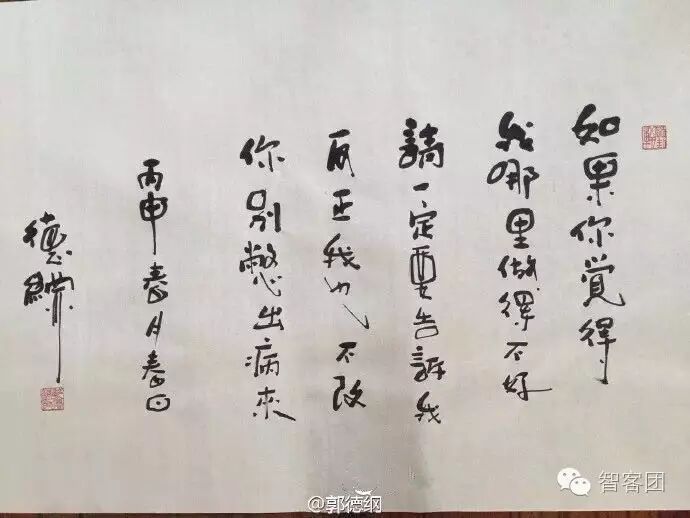 如果你覺得
我哪里做得不好
請一定要告訴我
反正我也不改
你别憋出病來
丙申春月春日
德綱
@郭德纲
智客团